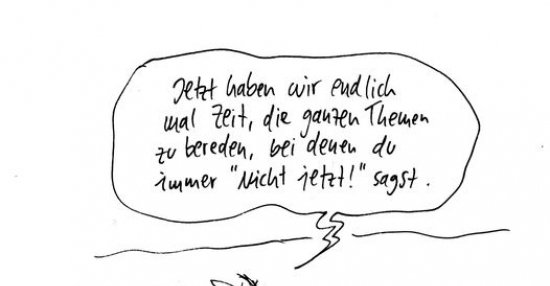 Jetzt haben wir endlich
mal Zeit, die ganzen Themen
zu bereden, bei denen du
immer "Nicht jetzt!" sagst.